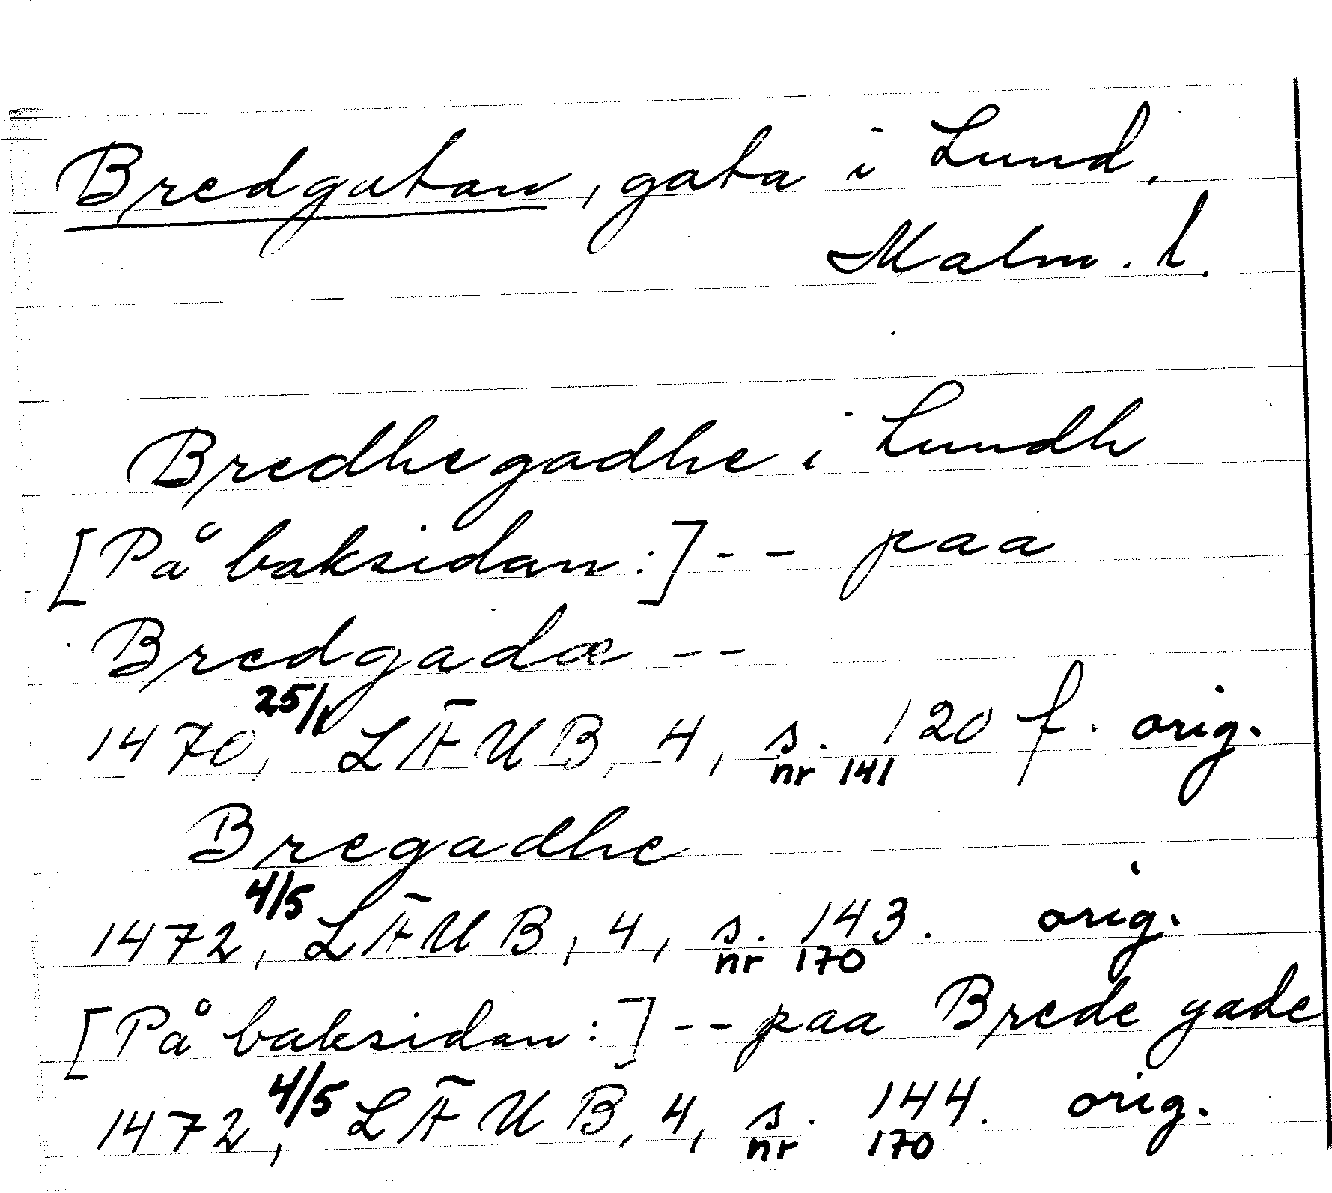 Bredgatan, gata i Lund,
Malm. l.
Bredhegadhe i Lundh
[På baksidan:] -- paa
Bredgadæ --
1470 25/1, LÄUB, 4, s. 120 f. orig.
nr 141
Bregadhe
1472 4/5, LÄUB, 4, s. 143. orig.
nr 170
[På baksidan:] -- paa Brede gade
1472 4/5, LÄUB, 4, s. 144. orig.
nr 170